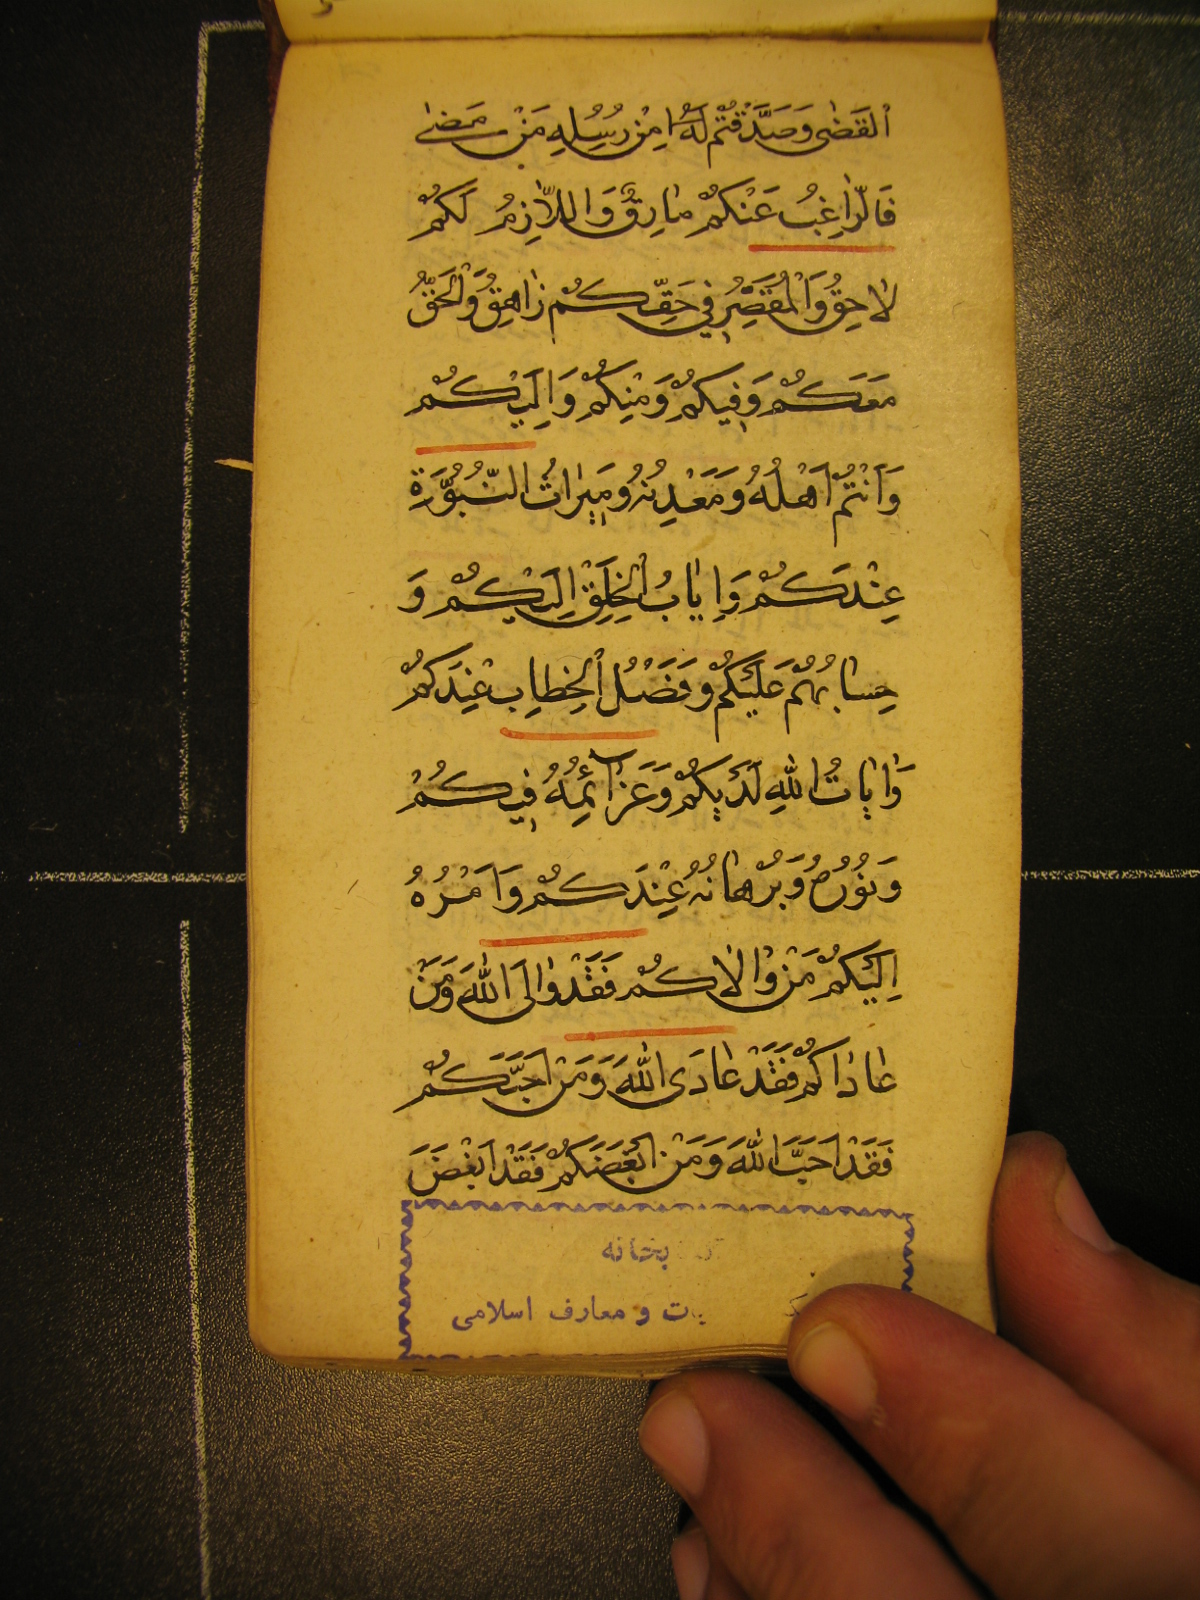 الْقَضٰى وَصَدَّقْتُمْ لَهُ مِنْ رُسُلِهِ مَنْ مَضٰى
فَالرّٰاغِبُ عَنْكُمْ مٰارِقٌ وَاللّاٰزِمُ لَكُمْ
لاٰحِقٌ وَالْمُقَصِّرُ فِي حَقِّكُمْ زٰاهِقٌ وَالْحَقُّ
مَعَكُمْ وَفِيكُمْ وَمِنْكُمْ وَاِلَيْكُمْ
وَاَنْتُمْ اَهْلُهُ وَمَعْدِنُهُ وَمِيرٰاثُ النُّبُوَّةِ
عِنْدَكُمْ وَاِيٰابُ الْخَلْقِ اِلَيْكُمْ وَ
حِسٰابُهُمْ عَلَيْكُمْ وَفَصْلُ الْخِطٰابِ عِنْدَكُمْ
وَاٰيٰاتُ اللّٰهِ لَدَيْكُمْ وَعَزٰائِمُهُ فِيكُمْ
وَنُورُهُ وَبُرْهٰانُهُ عِنْدَكُمْ وَاَمْرُهُ
اِلَيْكُمْ مَنْ وٰالاٰكُمْ فَقَدْ وٰالَى اللّٰهَ وَمَنْ
عٰادٰاكُمْ فَقَدْ عٰادَى اللّٰهَ وَمَنْ اَحَبَّكُمْ
فَقَدْ اَحَبَّ اللّٰهَ وَمَنْ اَبْغَضَكُمْ فَقَدْ اَبْغَضَ
بخانه
ت و معارف اسلامی